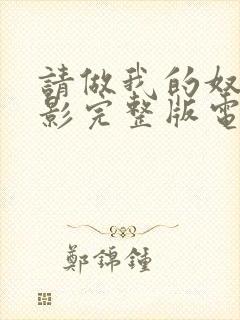 請做我的奴
影完整版電
鄭錦鐘